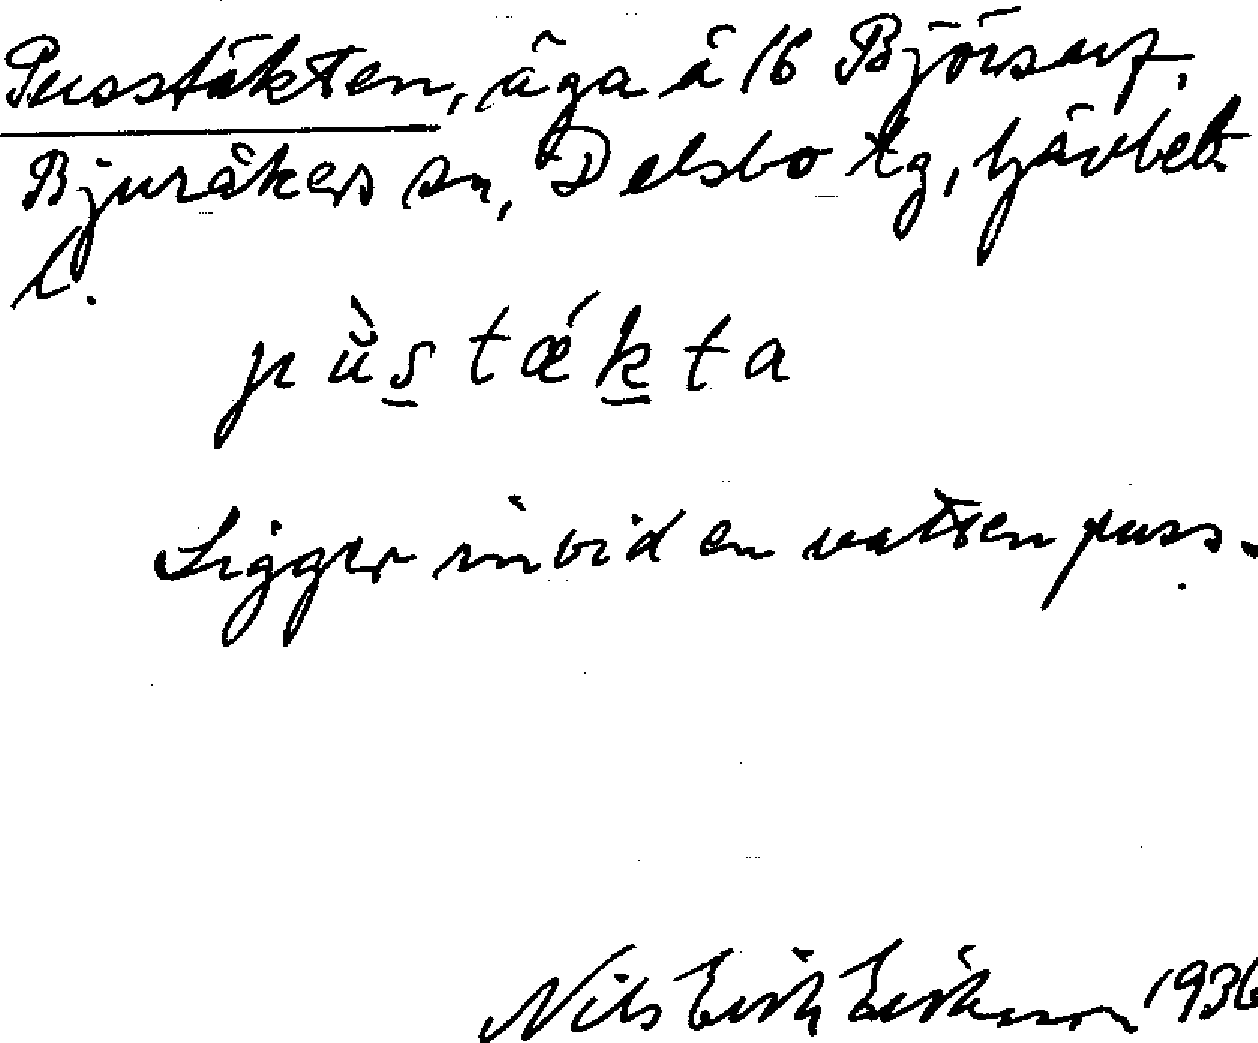 Pusstäkten, äga å 16 Björsarf,
Bjuråkers sn, Delsbo tg, Gävleb.
l.
pùstǽkta
Ligger invid en vattenpuss.
Nils Erik Eriksson 1936